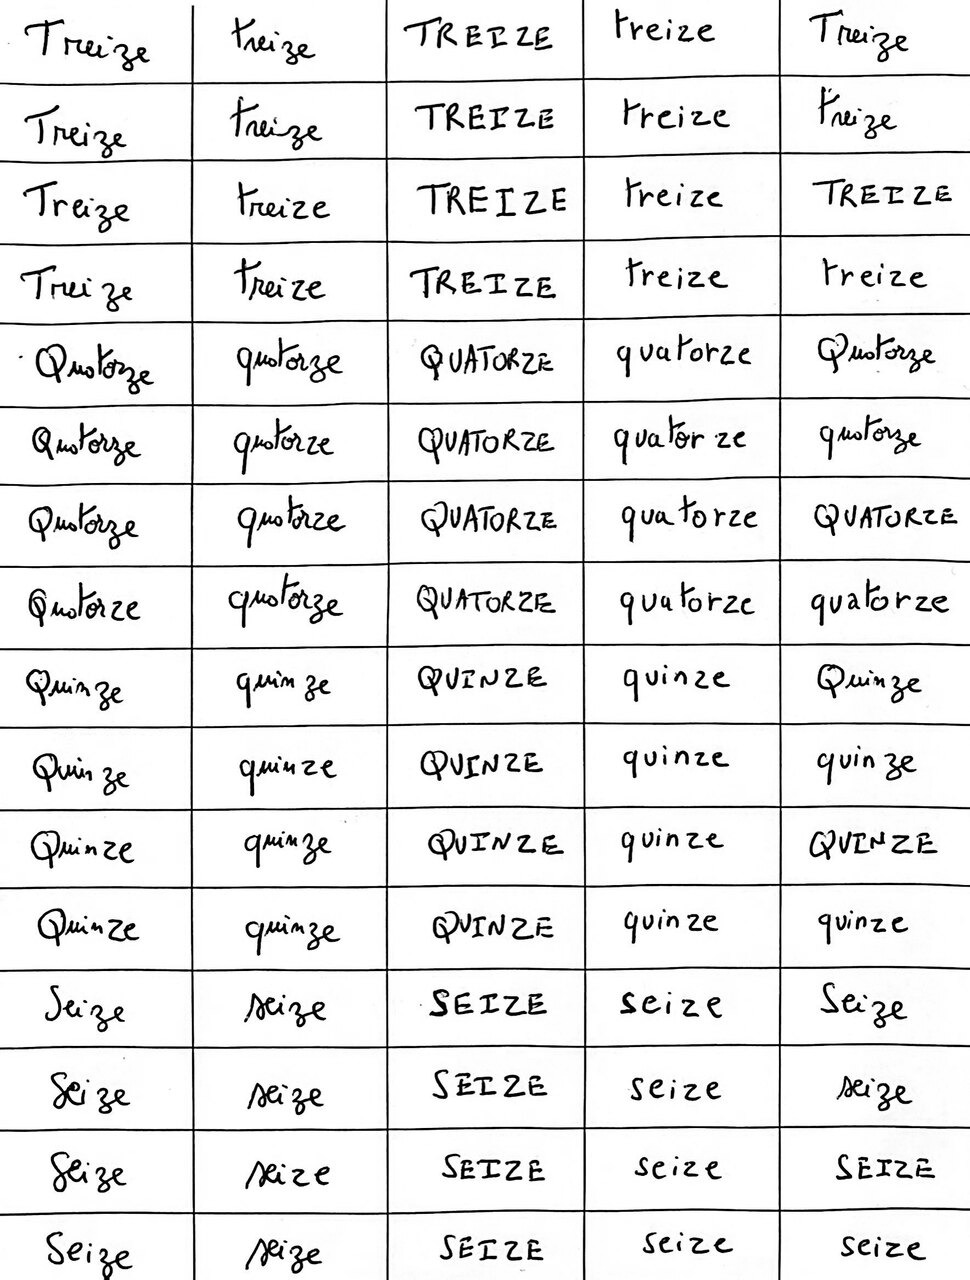 Treize treize TREIZE treize Treize
Treize treize TREIZE treize treize
Treize treize TREIZE treize TREIZE
Treize treize TREIZE treize treize
Quatorze quatorze QUATORZE quatorze Quatorze
Quatorze quatorze QUATORZE quatorze quatorze
Quatorze quatorze QUATORZE quatorze QUATORZE
Quatorze quatorze QUATORZE quatorze quatorze
Quinze quinze QUINZE quinze Quinze
Quinze quinze QUINZE quinze quinze
Quinze quinze QUINZE quinze QUINZE
Quinze quinze QUINZE quinze quinze
Seize seize SEIZE seize Seize
Seize seize SEIZE seize seize
Seize seize SEIZE seize SEIZE
Seize seize SEIZE seize seize